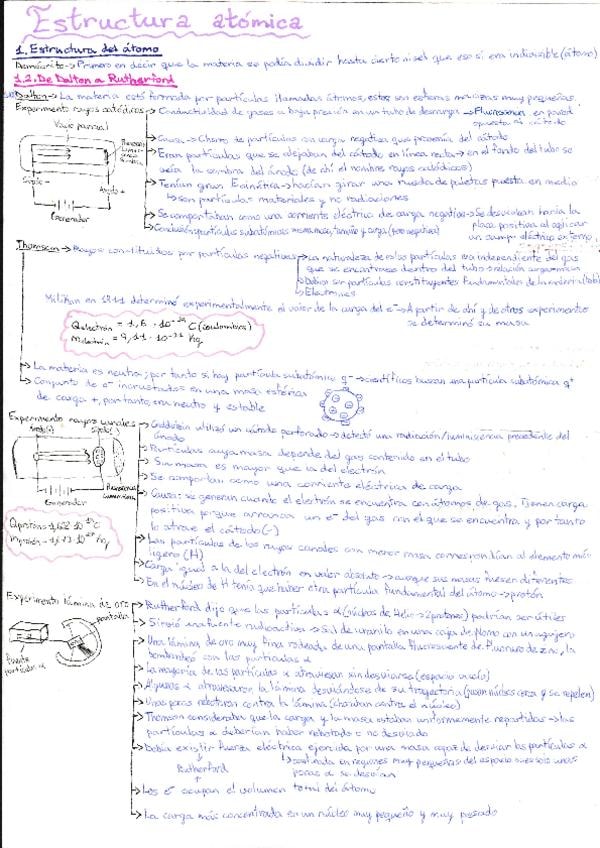 Estructura atómica
1. Estructura del átomo
Demócrito → Primero en decir que la materia se podía dividir hasta cierto nivel que eso sí era indivisible (átomo)
1.2. De Dalton a Rutherford
Dalton → La materia está formada por partículas llamadas átomos, estos son esferas macizas muy pequeñas.
Experimento rayos catódicos → Conductividad de gases a baja presión en un tubo de descarga → Fluorescen en pared
opuesta al cátodo
Vacío parcial
Causa → Chorro de partículas con carga negativa que provenía del cátodo
Eran partículas que se alejaban del cátodo en línea recta → en el fondo del tubo se
veía la sombra del ánodo (de ahí el nombre rayos catódicos)
Tenían gran Ecinética → hacían girar una rueda de paletas puesta en medio
↳ son partículas materiales y no radiaciones
Ánodo +
Generador
Se comportaban como una corriente eléctrica de carga negativa → Se desviaban hacia la
placa positiva al aplicar
un campo eléctrico externo.
Conclusión: partículas subatómicas misma masa, tamaño y carga (neg)
Thomson → Rayos constituidos por partículas negativas → La naturaleza de estas partículas era independiente del gas
que se encontrase dentro del tubo → relación carga-masa
Debían ser partículas constituyentes fundamentales de la materia (toda)
Electrones
Millikan en 1911 determinó experimentalmente el valor de la carga del e⁻ → A partir de ahí y de otros experimentos
se determinó su masa
Qelectrón = 1,6 · 10⁻¹⁹ C (coulombios)
Melectrón = 9,11 · 10⁻³¹ kg
La materia es neutra; por tanto si hay partícula subatómica q⁻ → científicos buscan una partícula subatómica q⁺
Conjunto de e⁻ incrustados en una masa esférica
de carga +, por tanto, era neutro y estable
Experimento rayos canales → Goldstein utilizó un cátodo perforado → detectó una radiación/luminiscencia procedente del
ánodo
Partículas cuya masa depende del gas contenido en el tubo
Su masa es mayor que la del electrón
Se comportan como una corriente eléctrica de carga
Generador
Causa: se generan cuando el electrón se encuentra con átomos de gas. Tienen carga
positiva porque arrancan un e⁻ del gas con el que se encuentra y por tanto
lo atrae el cátodo (-)
Las partículas de los rayos canales con menor masa correspondían al elemento más
ligero (H)
Carga igual a la del electrón en valor absoluto → aunque sus masas fuesen diferentes
En el núcleo de H tenía que haber otra partícula fundamental del átomo → protón
Experimento lámina de oro → Rutherford dijo que las partículas α (núcleos de Helio → 2 protones) podrían ser útiles
pantalla
Sirvió una fuente radioactiva → Sal de uranio en una caja de plomo con un agujero
Fuente
partículas α
Una lámina de oro muy fina rodeada de una pantalla fluorescente de fluoruro de zinc, la
bombardeó con las partículas α
La mayoría de las partículas α atraviesan sin desviarse (espacio vacío)
Algunas α atravesaron la lámina desviándose de su trayectoria (pasan núcleos cerca y se repelen)
Unas pocas rebotaron contra la lámina (chocaban contra el núcleo)
Thomson consideraba que la carga y la masa estaban uniformemente repartidas → las
partículas α deberían haber rebotado o no desviado
Debía existir fuerza eléctrica ejercida por una masa capaz de desviar las partículas α
Rutherford
↳ confinada en regiones muy pequeñas del espacio pues solo unas
pocas α se desvían
Los e⁻ ocupan el volumen total del átomo
La carga más concentrada en un núcleo muy pequeño y muy pesado